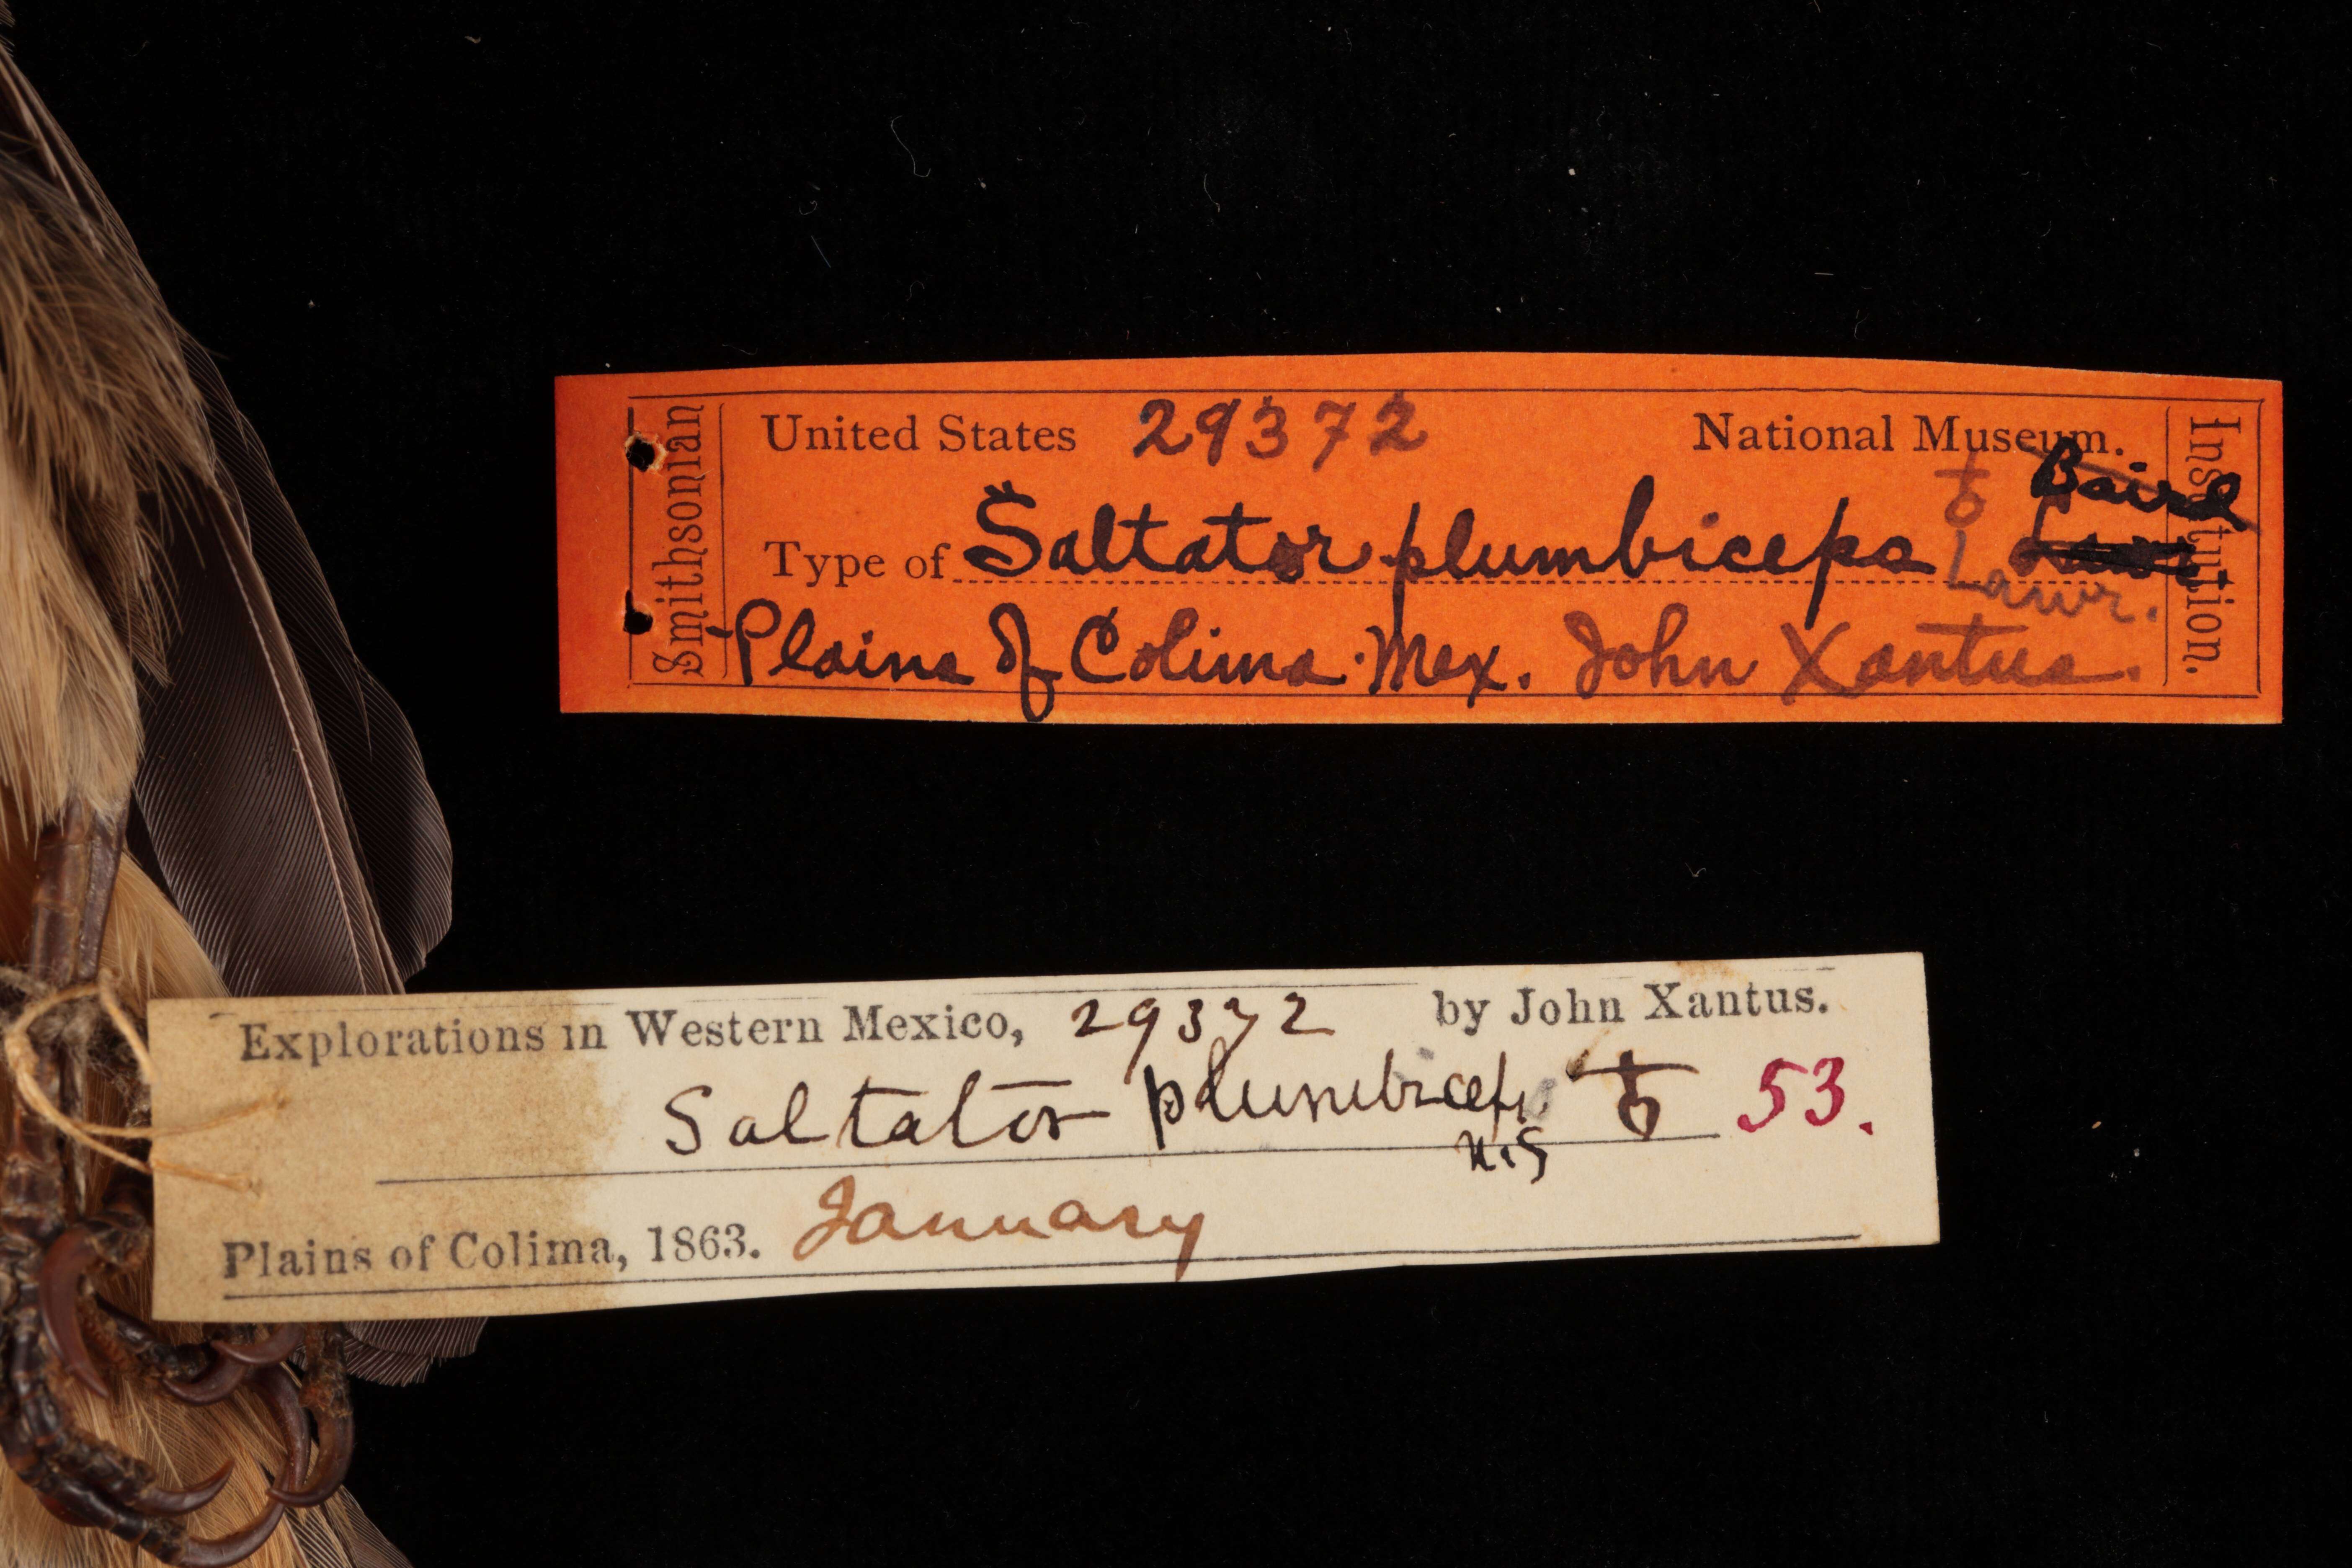 Smithsonian
United States 29372 National Museum.
♀ Baird
Type of Saltator plumbiceps Lawr.
Plains of Colima. Mex. John Xantus.
Institution.
Explorations in Western Mexico, 29372 by John Xantus.
Saltator plumbiceps ♀ 53.
N.S
Plains of Colima, 1863. January